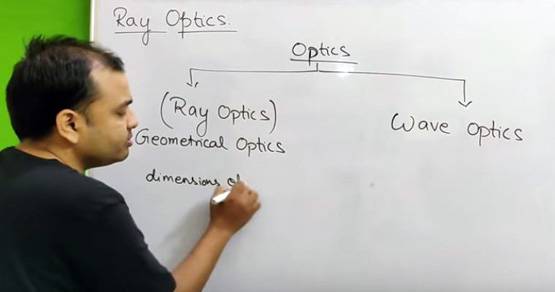 Ray Optics.
Optics
(Ray Optics)
Geometrical Optics
Wave Optics
dimensions of